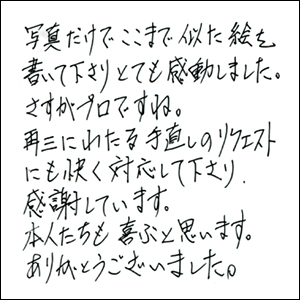 写真だけでここまで似た絵を
書いて下さりとても感動しました。
さすがプロですね。
再三にわたる手直しのリクエスト
にも快く対応して下さり
感謝しています。
本人たちも喜ぶと思います。
ありがとうございました。